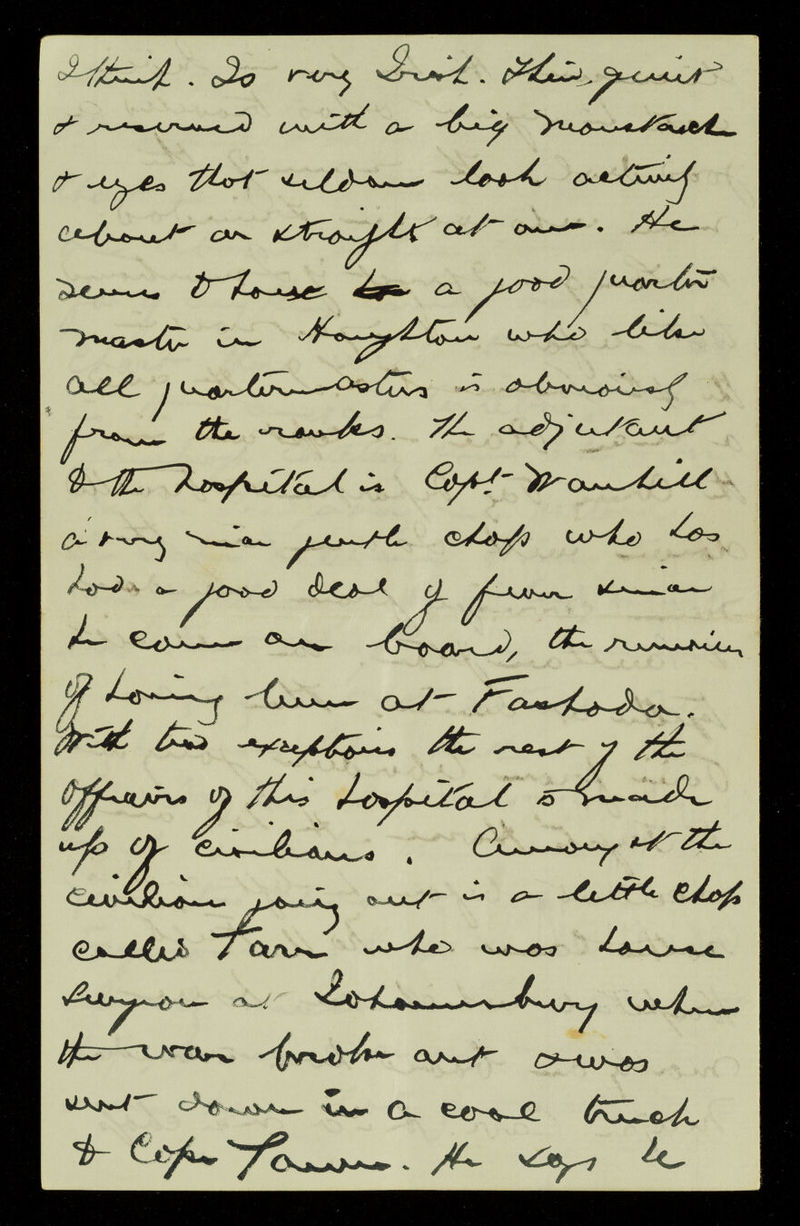 I think. Is very Irish. Thin, quiet
& reserved with a big moustache
& eyes that seldom look actively
about or straight at one. He
seems to have a good quarter
master in Houghton who like
all quartermasters is obviously
from the ranks. The adjutant
to the hospital is Capt. Wanhill
a very nice gentle chap who has
had a good deal of fever since
he came on board, the remains
of having been at Fashoda.
With two exceptions the rest of the
officers of this hospital is made
up of civilians. Amongst the
civilians going out is a little chap
called Tarr who was house
surgeon at Johannesburg when
the war broke out & was
sent down in a coal truck
to Cape Town. He says he